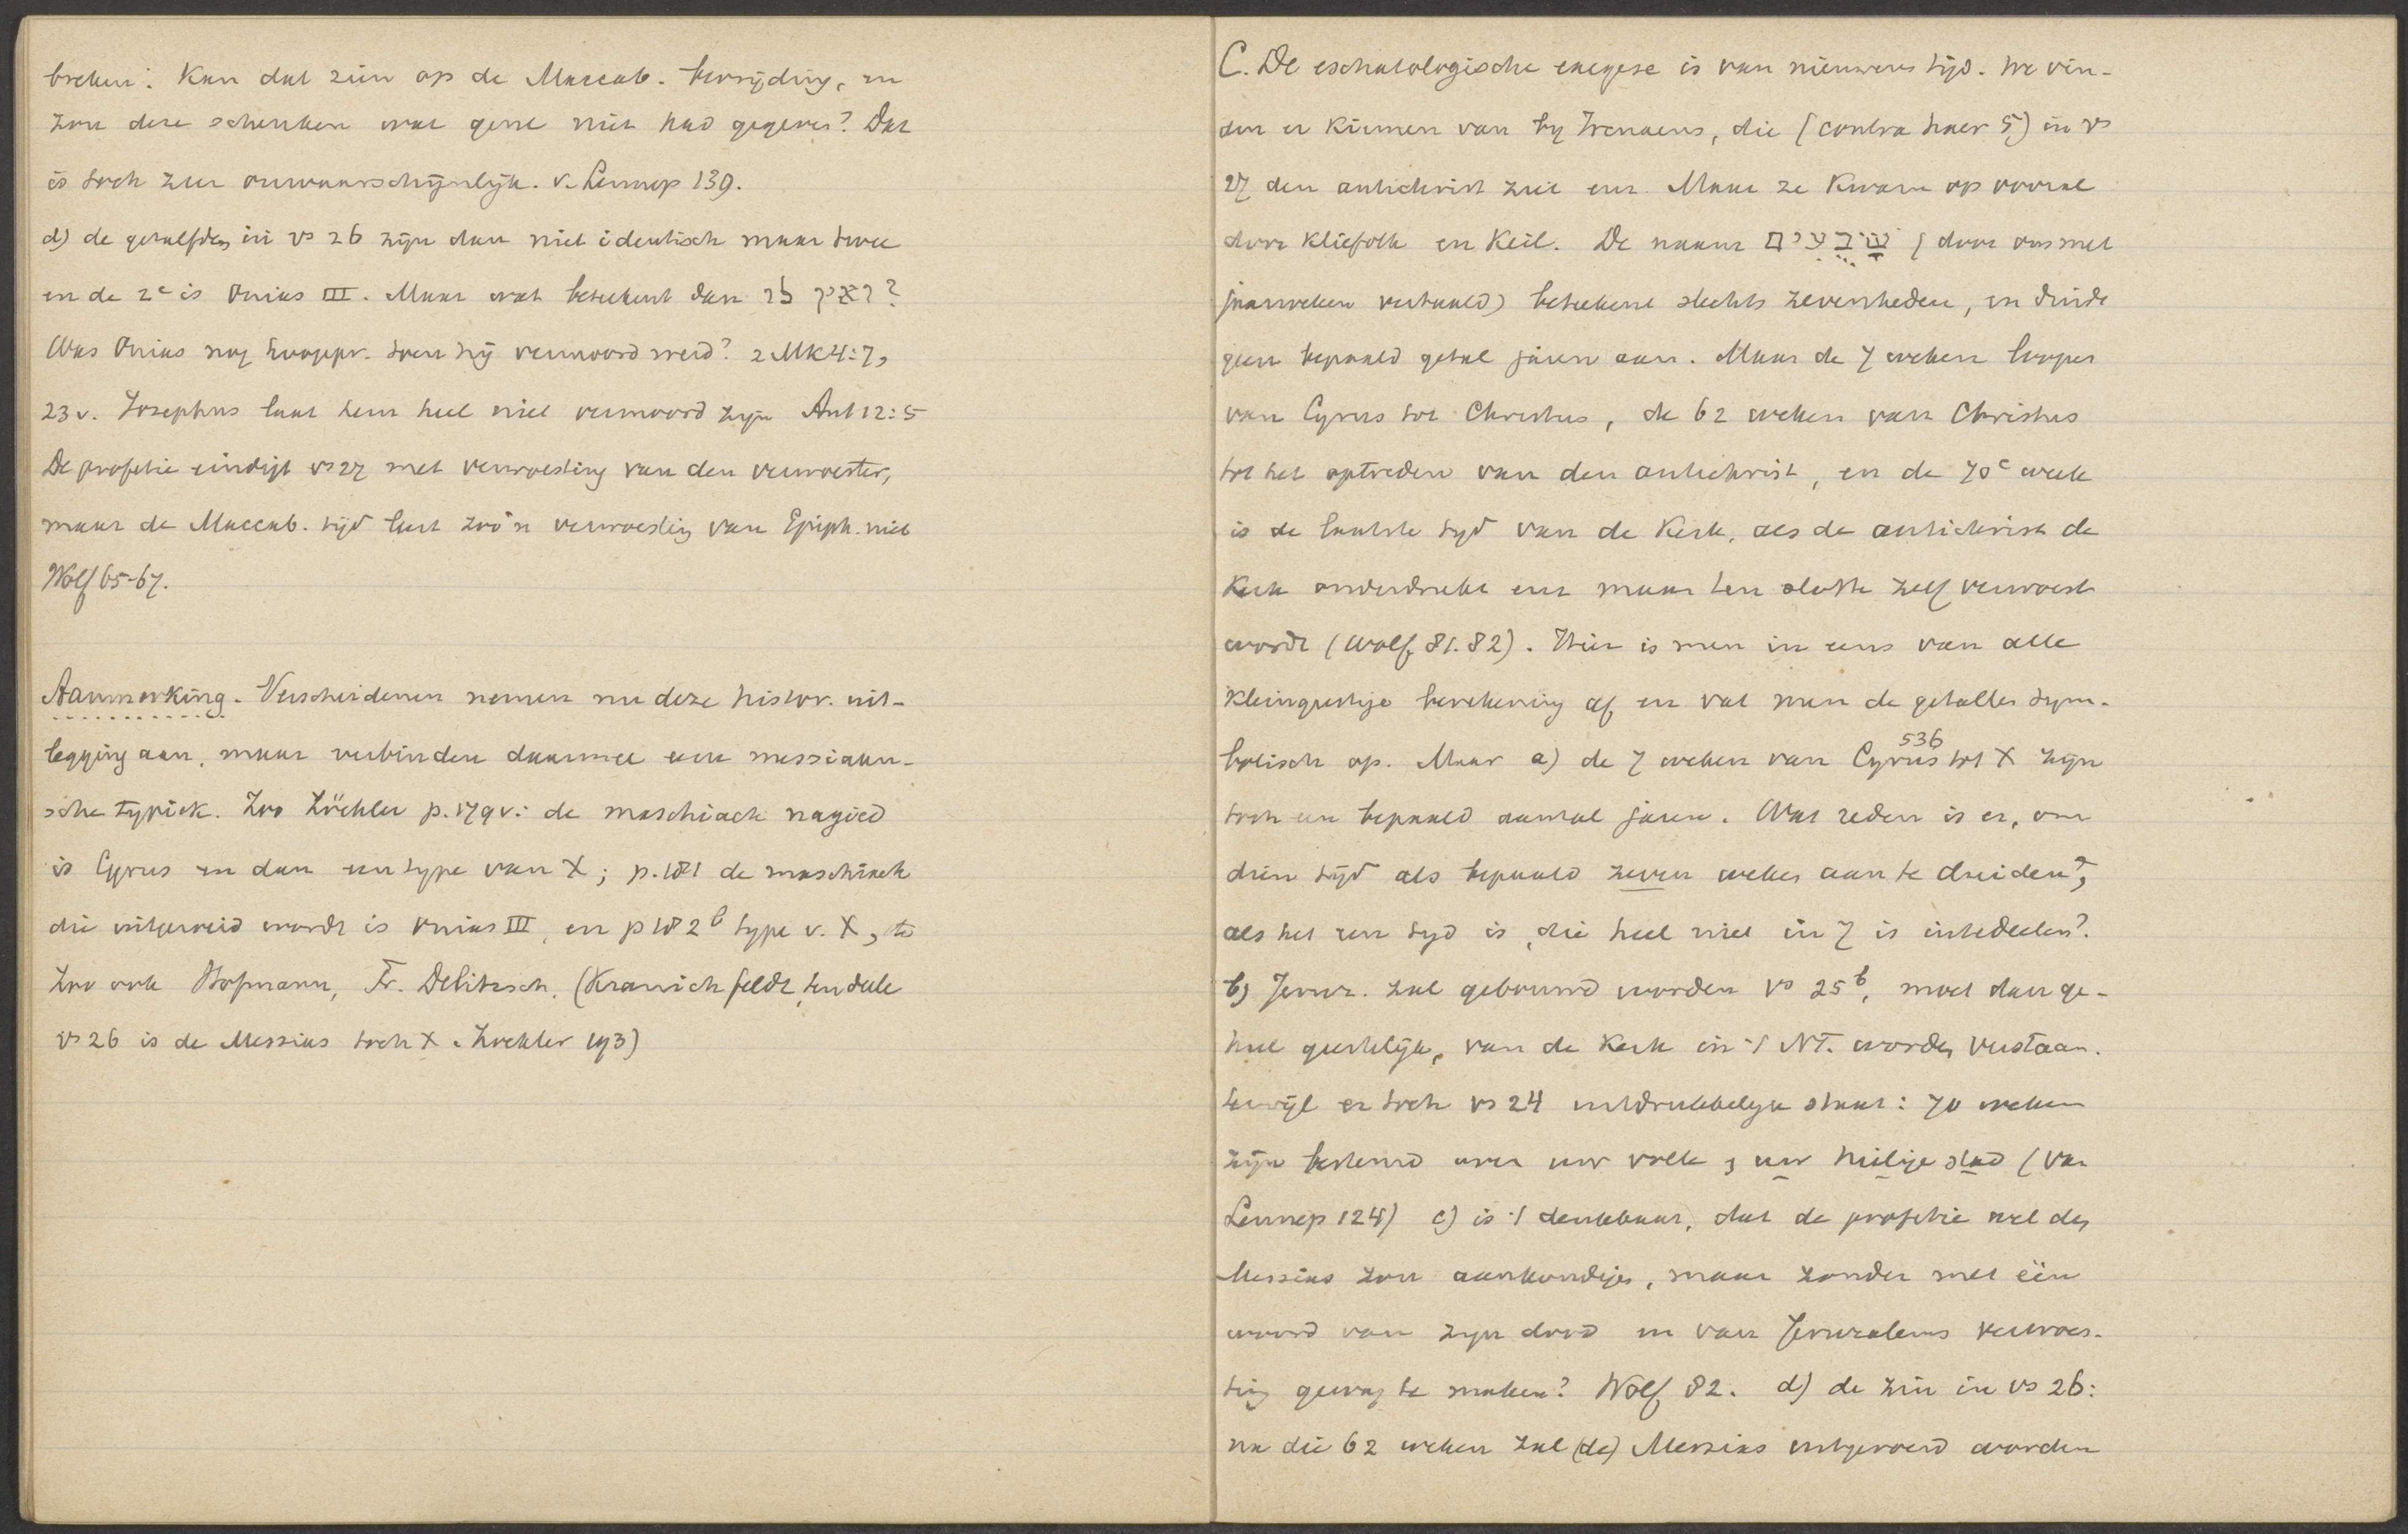 breken: Kan dat zien op de Maccab. bevrijding, en
zou deze schenken wat gene niet had gegeven? Dat
is toch zeer onwaarschijnlijk. v. Lennep 139.
d) de gezalfden in vs 26 zijn dan niet identisch maar twee
en de 2e is Onias III. Maar wat beteekent dan ואין לו?
Was Onias nog hoogepr. toen hij vermoord werd? 2 MK 4:7,
23v. Josephus laat hem heel niet vermoord zijn Ant 12:5
De profetie eindigt vs 27 met verwoesting van den verwoester,
maar de Maccab. tijd leert zoo'n verwoesting van Epiph. niet
Wolf 65-67.
Aanmerking. Verscheidenen nemen nu deze histor. uit-
legging aan, maar verbinden daarmee eene messiaan-
sche typiek. Zoo Zöckler p. 179v: de maschiach nagied
is Cyrus en dan een type van X; p. 181 de maschiach
die uitgeroeid wordt is Onias III, en p 182b type v. X,
Zoo ook Hofmann, Fr. Delitzsch. (Kranichfeldt, ten deele
vs 26 is de Messias toch X. Zöckler 193)
C. De eschatologische exegese is van nieuweren tijd. We vin-
den er kiemen van by Irenaeus, die (contra haer 5) in vs
27 den antichrist ziet enz. Maar ze kwam op vooral
door Kliefoth en Keil. De naam שבעים (door ons met
jaarweken vertaald) beteekent slechts zevenheden, en duidt
geen bepaald getal jaren aan. Maar de 7 weken loopen
van Cyrus tot Christus, de 62 weken van Christus
tot het optreden van den antichrist, en de 70e week
is de laatste tyd van de Kerk, als de antichrist de
Kerk onderdrukt enz maar ten slotte zelf verwoest
wordt (Wolf 81.82). Hier is men in eens van alle
kleingeestige berekening af en vat men de getallen sym-
bolisch op. Maar a) de 7 weken van Cyrus 536 tot X zijn
toch een bepaald aantal jaren. Wat reden is er, om
dien tijd als bepaald zeven weken aan te duiden?,
als het een tyd is, die heel niet in 7 is intedeelen?
b) Jeruz. zal gebouwd worden vs 25b, moet dan ge-
heel geestelijk, van de Kerk in 't NT. worden verstaan.
terwijl er toch vs 24 uitdrukkelyk staat: 70 weken
zijn bestemd over uw volk & uw heilige stad (Van
Lennep 124) c) is 't denkbaar, dat de profetie wel den
Messias zou aankondigen, maar zonder met één
woord van zijn dood en van Jeruzalems verwoes-
ting gewag te maken? Wolf 82. d) de zin in vs 26:
na die 62 weken zal (de) Messias uitgeroeid worden